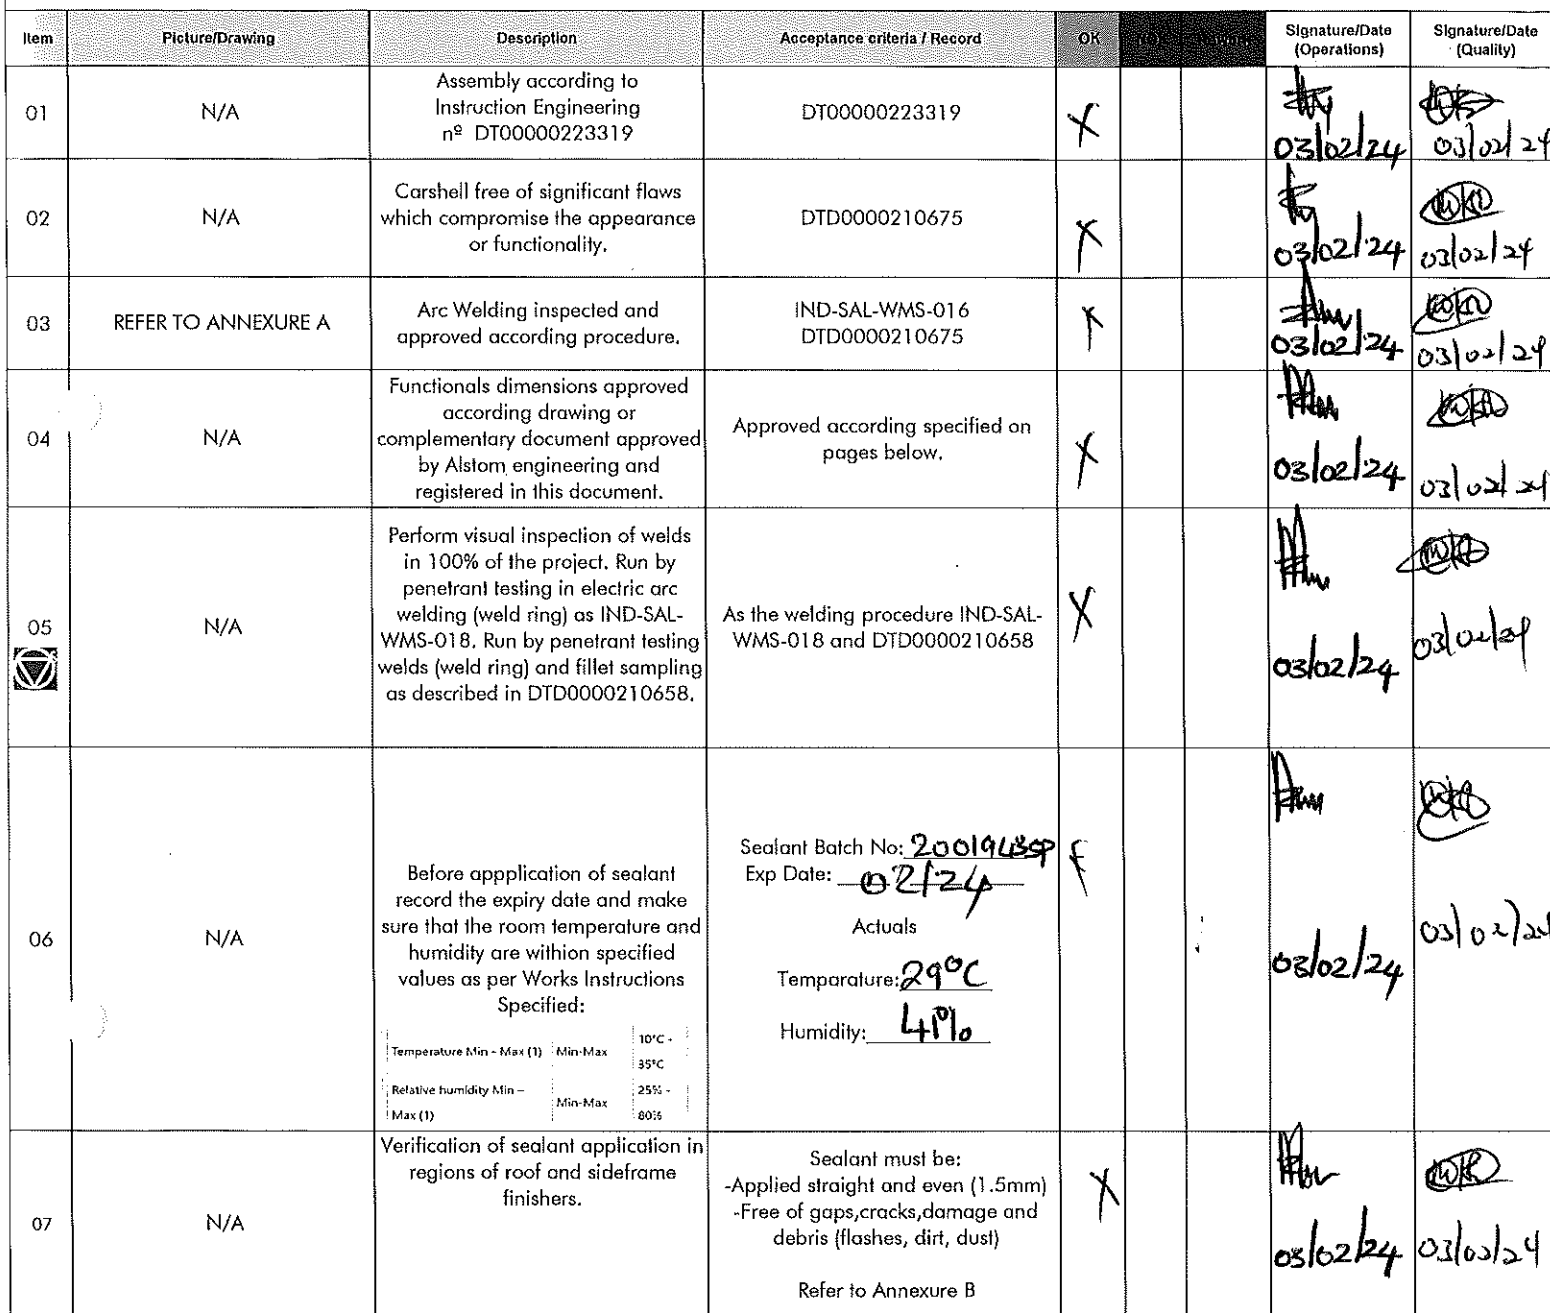 Item Picture/Drawing Description Acceptance criteria / Record OK Signature/Date (Operations) Signature/Date (Quality)
01 N/A
Assembly according to
Instruction Engineering
nº DT00000223319
DT00000223319
X
03/02/24
03/02/24
02 N/A
Carshell free of significant flaws
which compromise the appearance
or functionality.
DTD0000210675
X
03/02/24
03/02/24
03 REFER TO ANNEXURE A
Arc Welding inspected and
approved according procedure.
IND-SAL-WMS-016
DTD0000210675
X
03/02/24
03/02/24
04 N/A
Functionals dimensions approved
according drawing or
complementary document approved
by Alstom engineering and
registered in this document.
Approved according specified on
pages below.
X
03/02/24
03/02/24
05 N/A
Perform visual inspection of welds
in 100% of the project. Run by
penetrant testing in electric arc
welding (weld ring) as IND-SAL-
WMS-018. Run by penetrant testing
welds (weld ring) and fillet sampling
as described in DTD0000210658.
As the welding procedure IND-SAL-
WMS-018 and DTD0000210658
X
03/02/24
03/02/24
06 N/A
Before appplication of sealant
record the expiry date and make
sure that the room temperature and
humidity are withion specified
values as per Works Instructions
Specified:
Temperature Min - Max (1) Min-Max 10°C - 35°C
Relative humidity Min – Max (1) Min-Max 25% - 80%
Sealant Batch No:
Exp Date: 02/24
Actuals
Temparature: 29°C
Humidity: 41%
X
03/02/24
03/02/24
07 N/A
Verification of sealant application in
regions of roof and sideframe
finishers.
Sealant must be:
-Applied straight and even (1.5mm)
-Free of gaps,cracks,damage and
debris (flashes, dirt, dust)
Refer to Annexure B
X
03/02/24
03/02/24